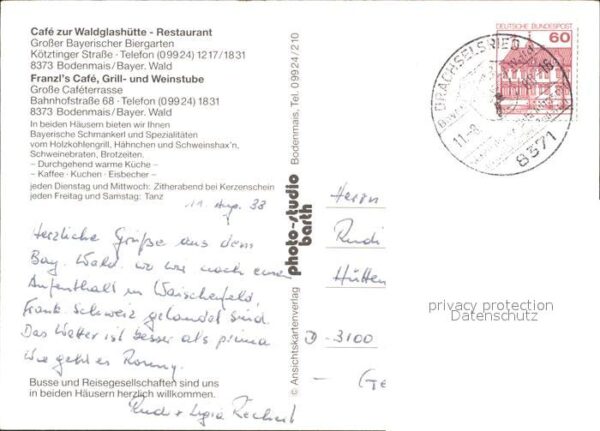 Café zur Waldglashütte - Restaurant
Großer Bayerischer Biergarten
Kötztinger Straße · Telefon (09924) 1217/1831
8373 Bodenmais/Bayer. Wald
Franzl's Café, Grill- und Weinstube
Große Caféterrasse
Bahnhofstraße 68 · Telefon (09924) 1831
8373 Bodenmais/Bayer. Wald
In beiden Häusern bieten wir Ihnen
Bayerische Schmankerl und Spezialitäten
vom Holzkohlengrill, Hähnchen und Schweinshax'n,
Schweinebraten, Brotzeiten.
– Durchgehend warme Küche –
– Kaffee · Kuchen · Eisbecher –
jeden Dienstag und Mittwoch: Zitherabend bei Kerzenschein
jeden Freitag und Samstag: Tanz
11. Aug. 88
Herzliche Grüße aus dem
Bay. Wald, wo wir nach einem
Aufenthalt in Waischenfeld,
Fränk. Schweiz gelandet sind.
Das Wetter ist besser als prima
Wie geht es
Busse und Reisegesellschaften sind uns
in beiden Häusern herzlich willkommen.
Rudi + Lygia
© Ansichtskartenverlag photo-studio barth Bodenmais, Tel. 09924/210
DEUTSCHE BUNDESPOST
60
DRACHSELSRIED
11.-8.
8371
Herrn
Rudi
Hütten
D-3100
privacy protection
Datenschutz